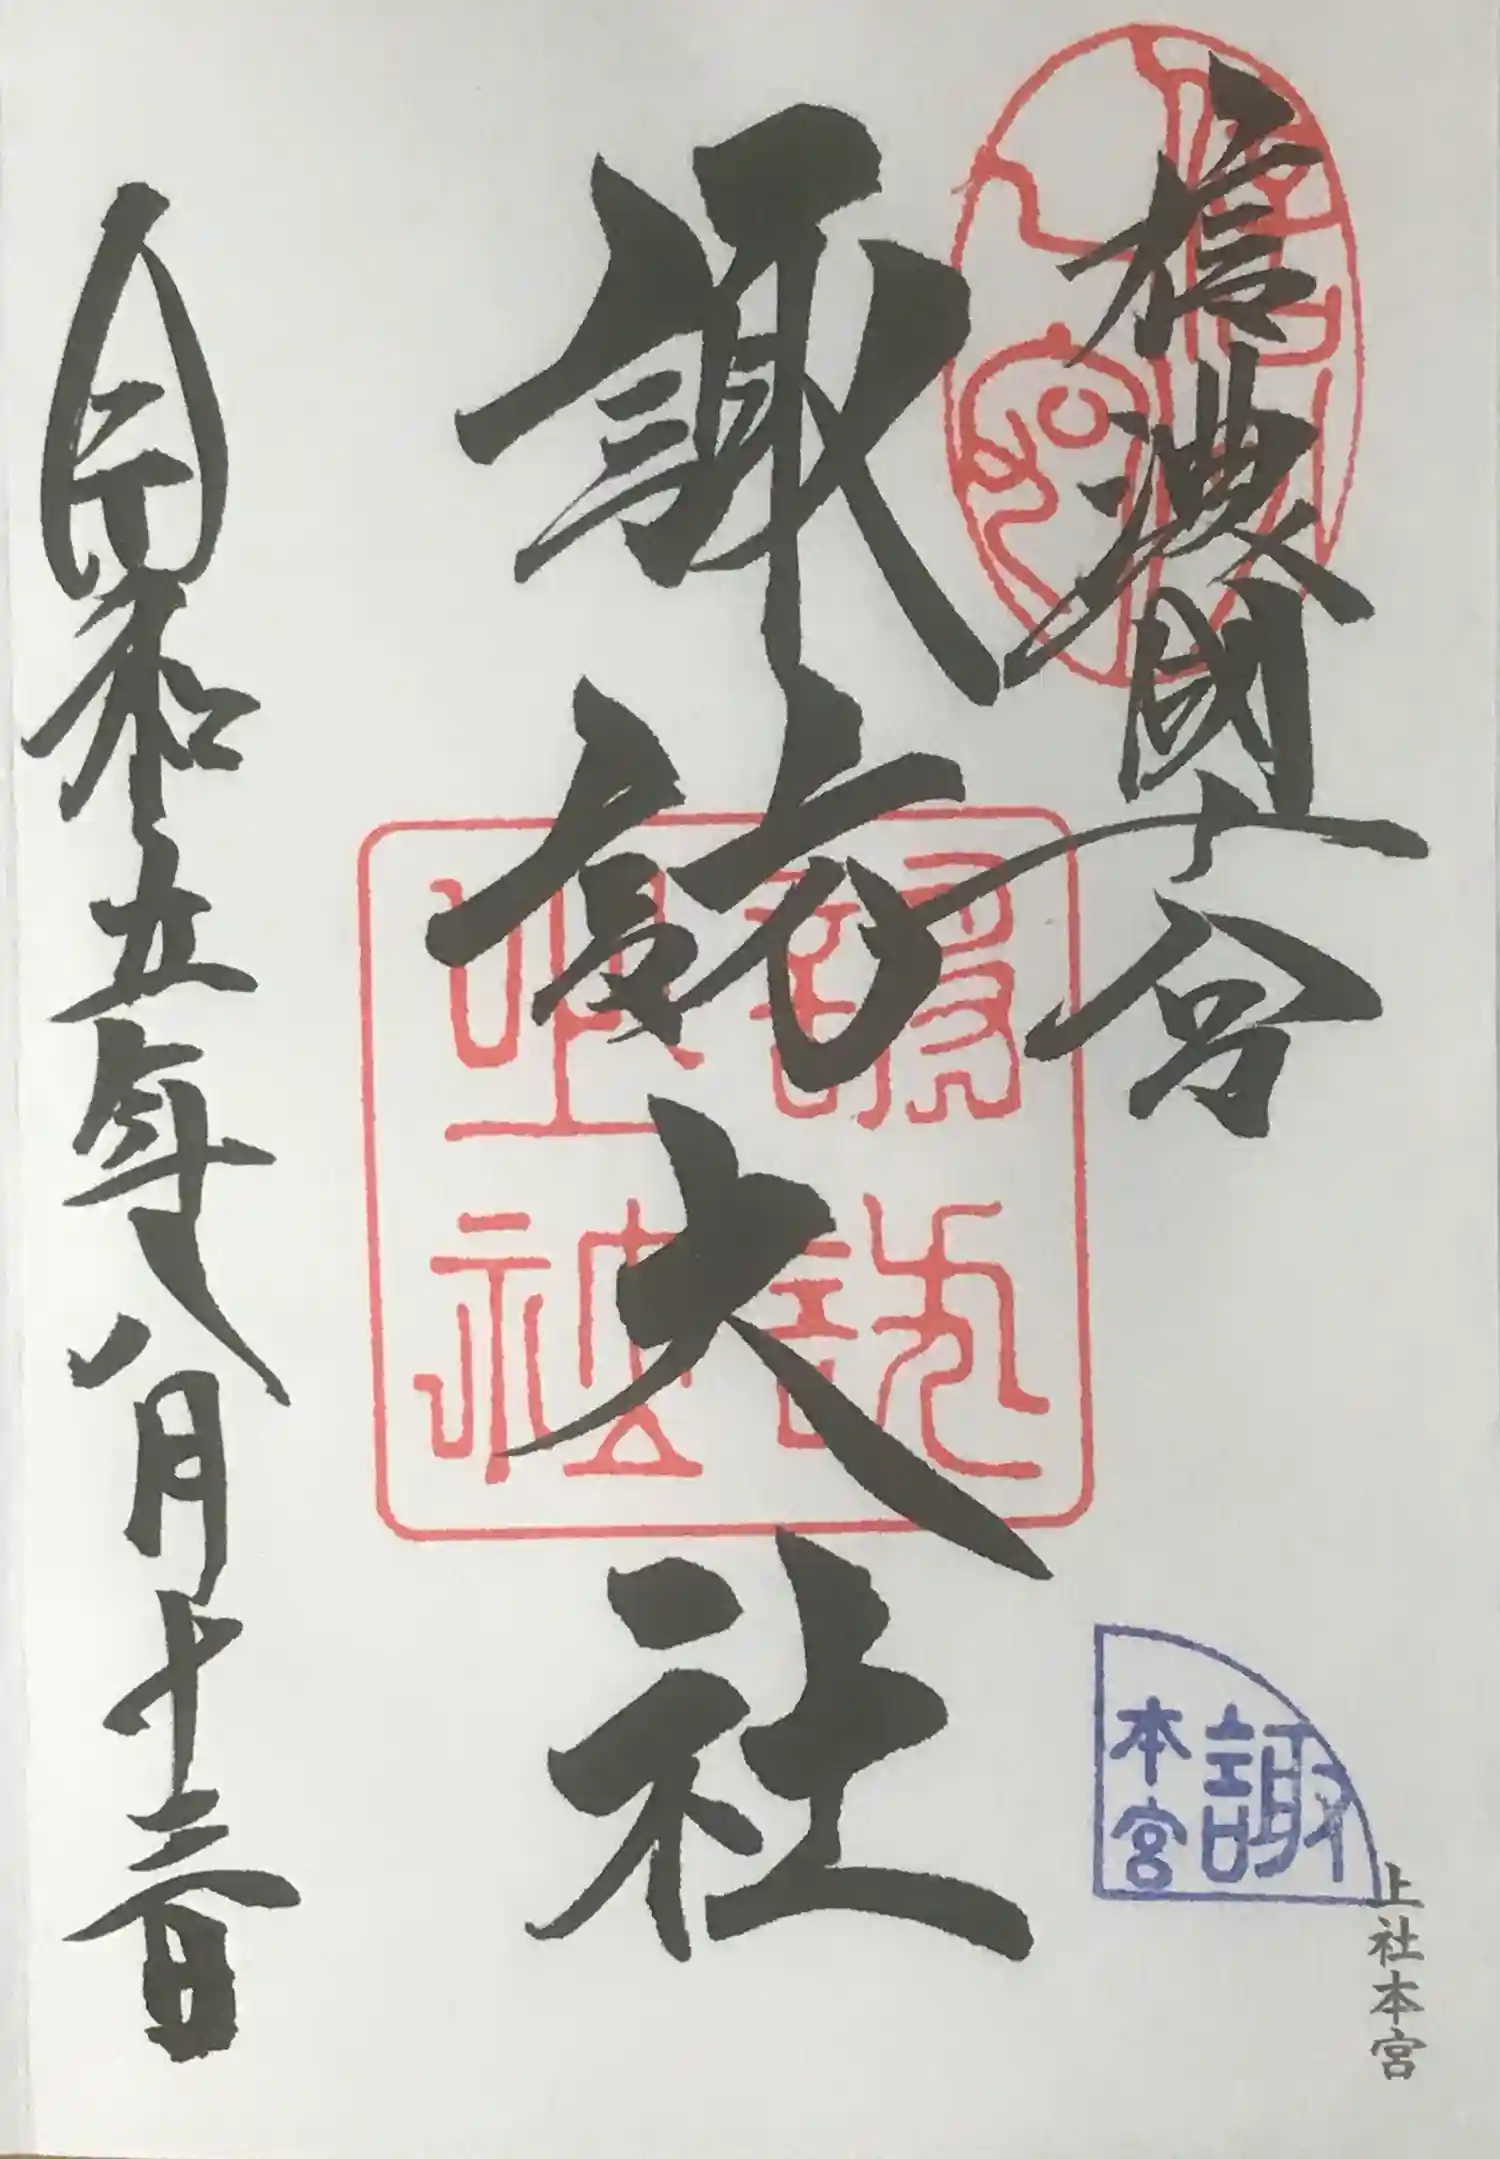 信濃國一之宮
諏訪大社
令和五年八月十二日
諏
本宮
上社本宮